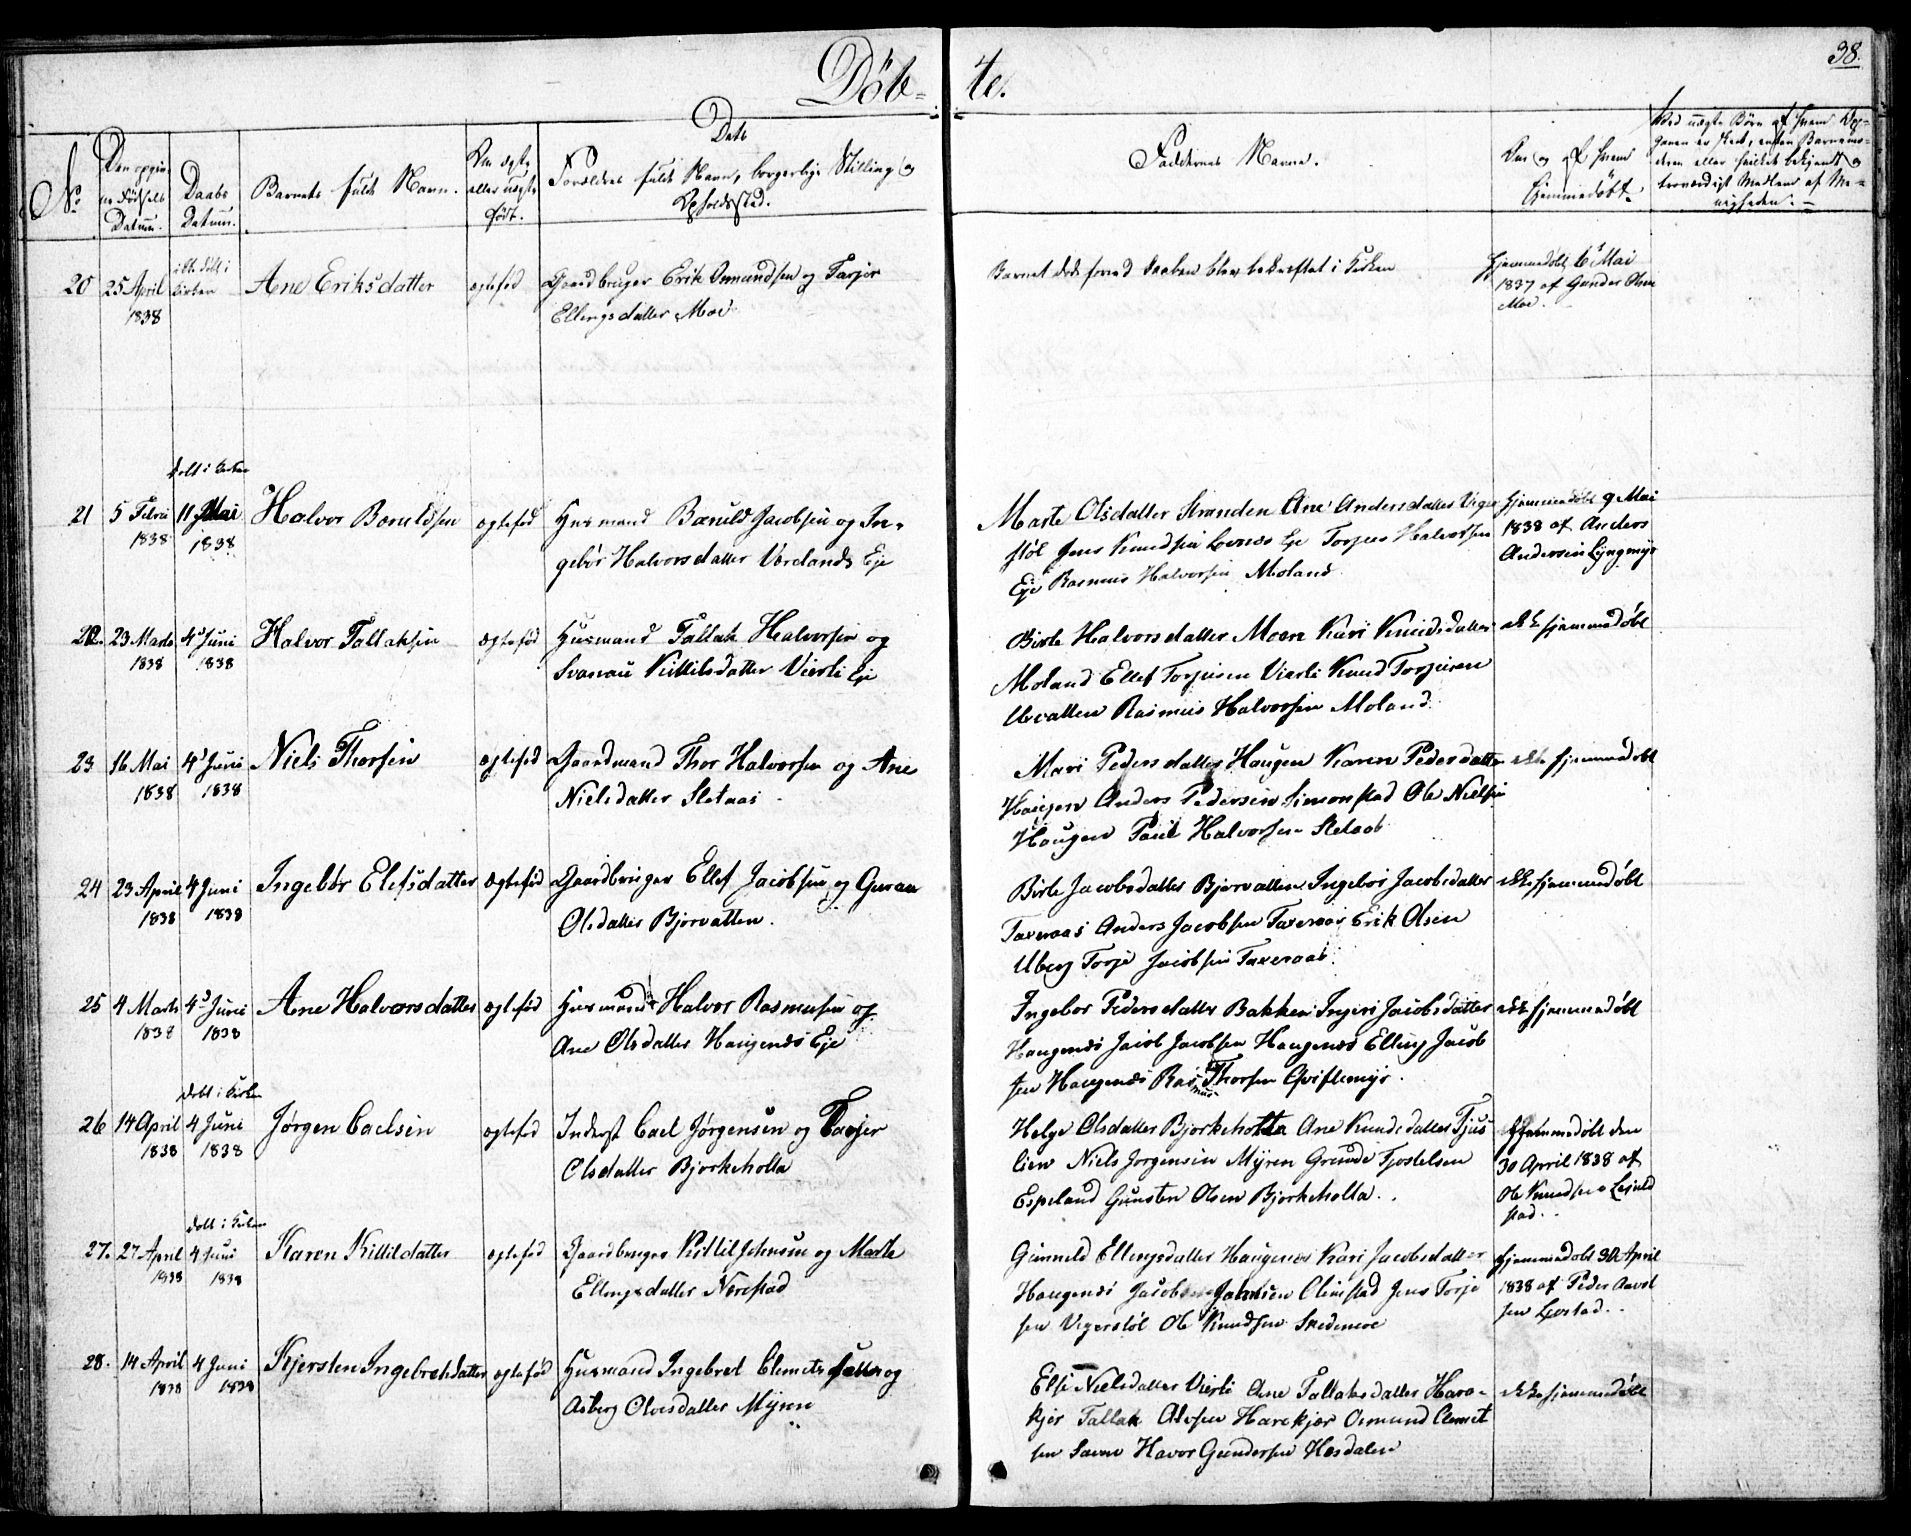 38.
Døbte.
No
Den opgivne Fødsels Datum.
Daabs Datum.
Barnets fulde Navn.
Om ægte eller uægte født.
Dets Forældres fulde Navn, borgerlige Stilling og Opholdssted.
Faddernes Navne.
Om og af hvem hjemmedøbt.
20 25 April 1838
ikke døbt i Kirken
Ane Eriksdatter
ægtefød
Gaardbruger Erik Osmundsen og Torjer
Ellingsdatter Moe
Barnet døde forend Daaben blev bekræftet i Kirken
Hjemmedøbt 6 Mai
1837 af Gunder Olsen
Moe.
døbt i Kirken
21 5 Febru 1838
11 Mai 1838
Halvor Boruldsen
ægtefød
Husmand Boruld Jacobsen og In-
gebor Halvorsdatter Verlands Eje
Marte Olsdatter Stranden Ane Andersdatter Veger
støl Jens Knudsen Lovnæs Eje Torjus Halvorsen
Eje Rasmus Halvorsen Moland
hjemmedøbt 9 Mai
1838 af Anders
Andersen Lyngmyr
22. 23 Marts 1838
4 Juni 1838
Halvor Tallaksen
ægtefød
Husmand Tallak Halvorsen og
Svanau Kittilsdatter Vierli Eje
Birte Halvorsdatter Moen Kari Knudsdatter
Moland Ellef Torjusen Vierli Knud Torjusen
Urvatten Rasmus Halvorsen Moland
ikke hjemmedøbt
23 16 Mai 1838
4 Juni 1838
Niels Thorsen
ægtefød
Gaardmand Thor Halvorsen og Ane
Nielsdatter Sletaas
Mari Pedersdatter Haugen Karen Pedersdatter
Haugen Anders Pedersen Simonstad Ole Nielsen
Haugen Paul Halvorsen Sletaas
ikke hjemmedøbt
24 23 April 1838
4 Juni 1838
Ingebør Elefsdatter
Ægtefød
Gaardbruger Ellef Jacobsen og Guran
Olsdatter Bjorvatten.
Birte Jacobsdatter Bjorvatten Ingebor Jacobsdatter
Taxeraas Anders Jacobsen Taxeraas Erik Olsen
Uberg Torje Jacobsen Taxeraas.
ikke hjemmedøbt
25 4 Marts 1838
4 Juni 1838
Ane Halvorsdatter
ægtefød
Husmand Halvor Rasmusen og
Ane Olsdatter Haugenæs Eje
Ingebor Pedersdatter Bakken Ingeri Jacobsdatter
Haugenæs Jacob Jacobsen Haugenæs Elling Jacob
sen Haugenæs Rasmus Thorsen Qvistemyr.
ikke hjemmedøbt
døbt i Kirken
26 14 April 1838
4 Juni 1838
Jørgen Caelsen
ægtefød
Inderst Cael Jørgensen og Torjer
Olsdatter Bjorkeholta
Helge Olsdatter Bjorkeholta Ane Knudsdatter Tjus
lien Niels Jorgensen Myren Grunde Tjostelsen
Espeland Gunsten Olsen Bjorkeholta.
hjemmedøbt den
30 April 1838 af
Ole Knudsen
stad.
døbt i Kirken
27. 27 April 1838
4 Juni 1838
Karen Kittildatter
ægtefød
Gaardbruger Kittil Jensen og Marte
Ellingsdatter Nerestad
Gunneld Ellingsdatter Haugenæs Kari Jacobsdatter
Haugenæs Jacob Jansen Olimstad Jens Torje
sen Vegerstøl Ole Knudsen Smedemoe
hjemmedøbt 30 April
1838 af Peder
28. 14 April 1838
4 Juni 1838
Kjersten Ingebretsdatter
ægtefød
Husmand Ingebret Clemetsen og
Asberg Olvesdatter Myren
Else Nielsdatter Vierli Ane Tallaksdatter Hare-
kjer Tallak Alvsen Harekjær Osmund Clemet
sen Saven Havor Gundersen Hesdalen
ikke hjemmedøbt